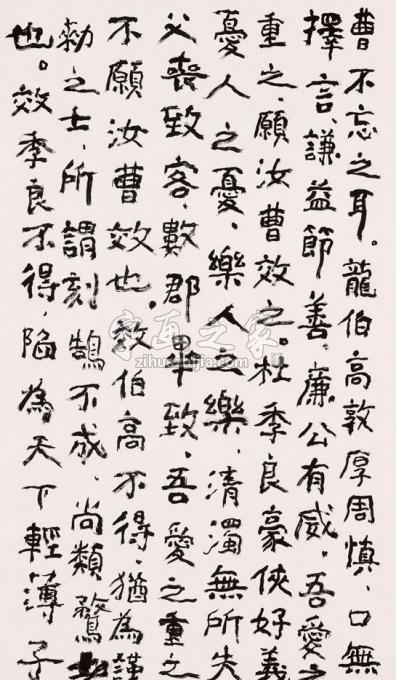 曹不忘之耳。龍伯高敦厚周慎、口無
擇言、謙益節善、廉公有威。吾愛之
重之、願汝曹效之。杜季良豪俠好義
憂人之憂、樂人之樂、清濁無所失
父喪致客、數郡畢致、吾愛之重之
不願汝曹效也。效伯高不得、猶為謹
勑之士、所謂刻鵠不成、尚類鶩
也。效季良不得、陷為天下輕薄子
字画之家
zihuazhijia.com